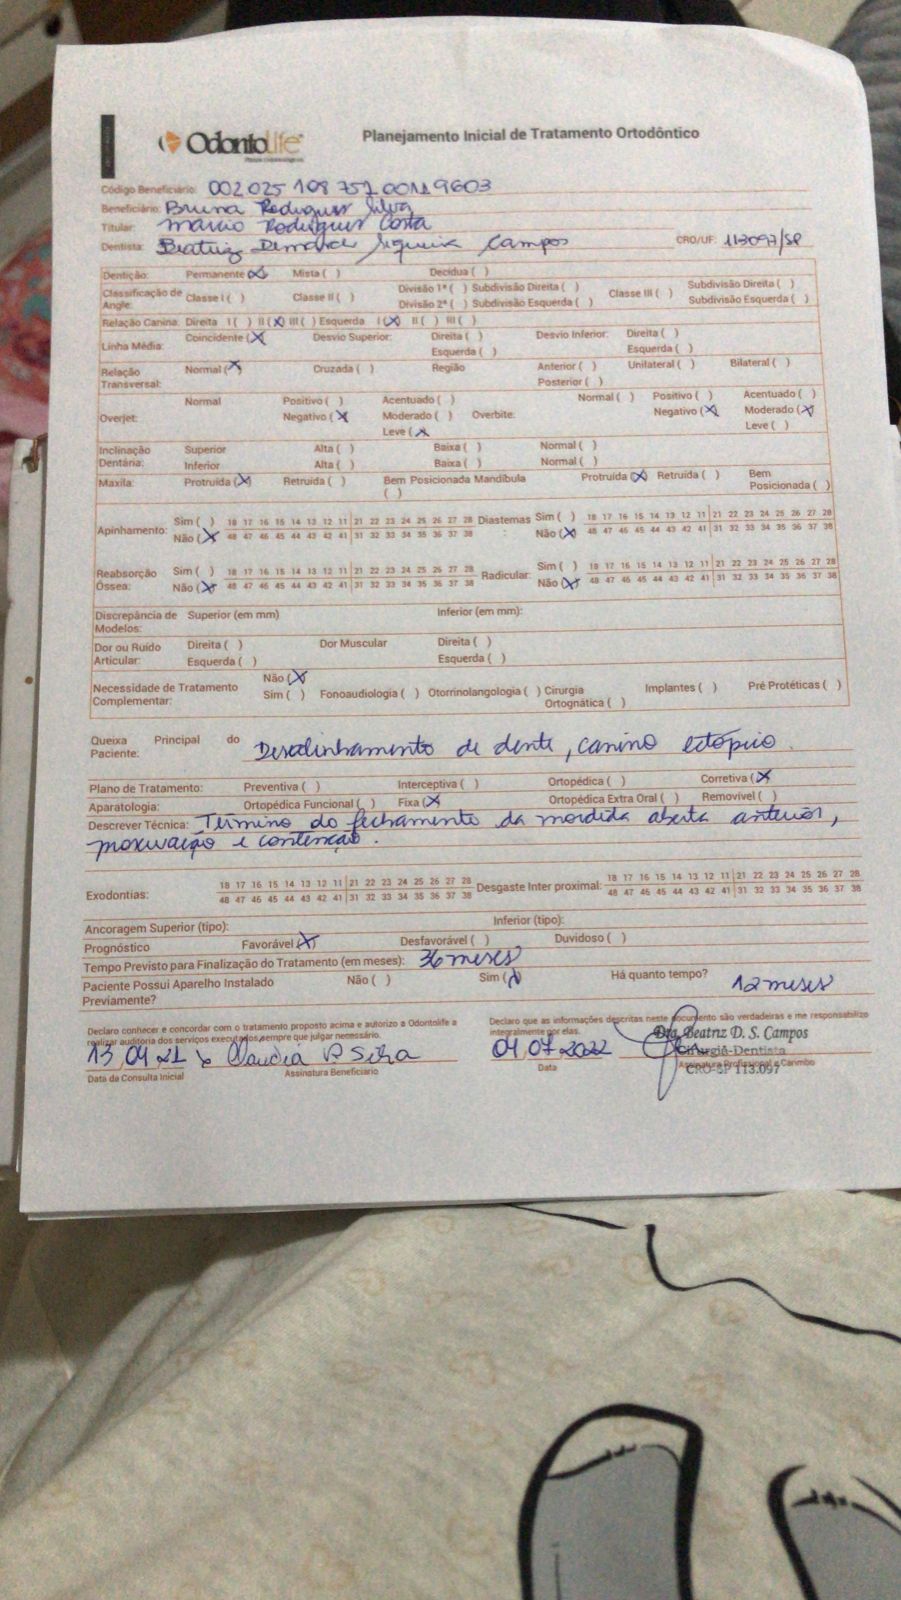 OdontoLife
Planejamento Inicial de Tratamento Ortodôntico
Código Beneficiário: 002 025 108 757 00119603
Beneficiário: Bruna Rodrigues Silva
Titular: Marcio Rodrigues Costa
Dentista: Beatriz Siqueira Campos CRO/UF: 113097/SP
Dentição: Permanente (X) Mista ( ) Decídua ( )
Classificação de Angle: Classe I ( ) Classe II ( ) Divisão 1ª ( ) Subdivisão Direita ( ) Classe III ( ) Subdivisão Direita ( )
Divisão 2ª ( ) Subdivisão Esquerda ( ) Subdivisão Esquerda ( )
Relação Canina: Direita I ( ) II (X) III ( ) Esquerda I (X) II ( ) III ( )
Linha Média: Coincidente (X) Desvio Superior: Direita ( ) Desvio Inferior: Direita ( )
Esquerda ( ) Esquerda ( )
Relação Transversal: Normal (X) Cruzada ( ) Região Anterior ( ) Unilateral ( ) Bilateral ( )
Posterior ( )
Normal Positivo ( ) Acentuado ( ) Normal ( ) Positivo ( ) Acentuado ( )
Overjet: Negativo (X) Moderado ( ) Overbite: Negativo (X) Moderado (X)
Leve (X) Leve ( )
Inclinação Superior Alta ( ) Baixa ( ) Normal ( )
Dentária: Inferior Alta ( ) Baixa ( ) Normal ( )
Maxila: Protruída (X) Retruída ( ) Bem Posicionada ( ) Mandíbula Protruída (X) Retruída ( ) Bem Posicionada ( )
Apinhamento: Sim ( ) 18 17 16 15 14 13 12 11 21 22 23 24 25 26 27 28 Diastemas: Sim ( ) 18 17 16 15 14 13 12 11 21 22 23 24 25 26 27 28
Não (X) 48 47 46 45 44 43 42 41 31 32 33 34 35 36 37 38 Não (X) 48 47 46 45 44 43 42 41 31 32 33 34 35 36 37 38
Reabsorção Óssea: Sim ( ) 18 17 16 15 14 13 12 11 21 22 23 24 25 26 27 28 Radicular: Sim ( ) 18 17 16 15 14 13 12 11 21 22 23 24 25 26 27 28
Não (X) 48 47 46 45 44 43 42 41 31 32 33 34 35 36 37 38 Não (X) 48 47 46 45 44 43 42 41 31 32 33 34 35 36 37 38
Discrepância de Modelos: Superior (em mm) Inferior (em mm):
Dor ou Ruído Direita ( ) Dor Muscular Direita ( )
Articular: Esquerda ( ) Esquerda ( )
Não (X)
Necessidade de Tratamento Complementar: Sim ( ) Fonoaudiologia ( ) Otorrinolangologia ( ) Cirurgia Ortognática ( ) Implantes ( ) Pré Protéticas ( )
Queixa Principal do Paciente: Desalinhamento de dente, canino ectópico.
Plano de Tratamento: Preventiva ( ) Interceptiva ( ) Ortopédica ( ) Corretiva (X)
Aparatologia: Ortopédica Funcional ( ) Fixa (X) Ortopédica Extra Oral ( ) Removível ( )
Descrever Técnica: Término do fechamento da mordida aberta anterior,
e contenção.
Exodontias: 18 17 16 15 14 13 12 11 21 22 23 24 25 26 27 28 Desgaste Inter proximal: 18 17 16 15 14 13 12 11 21 22 23 24 25 26 27 28
48 47 46 45 44 43 42 41 31 32 33 34 35 36 37 38 48 47 46 45 44 43 42 41 31 32 33 34 35 36 37 38
Ancoragem Superior (tipo): Inferior (tipo):
Prognóstico Favorável (X) Desfavorável ( ) Duvidoso ( )
Tempo Previsto para Finalização do Tratamento (em meses): 36 meses
Paciente Possui Aparelho Instalado Previamente? Não ( ) Sim (X) Há quanto tempo? 12 meses
Declaro conhecer e concordar com o tratamento proposto acima e autorizo a Odontolife a
realizar auditoria dos serviços executados, sempre que julgar necessário.
Declaro que as informações descritas neste documento são verdadeiras e me responsabilizo
integralmente por elas.
13 04 21 Claudia R Silva 04 07 2022
Dra. Beatriz D. S. Campos
Cirurgiã-Dentista
CRO-SP 113.097
Data da Consulta Inicial Assinatura Beneficiário Data Assinatura Profissional e Carimbo